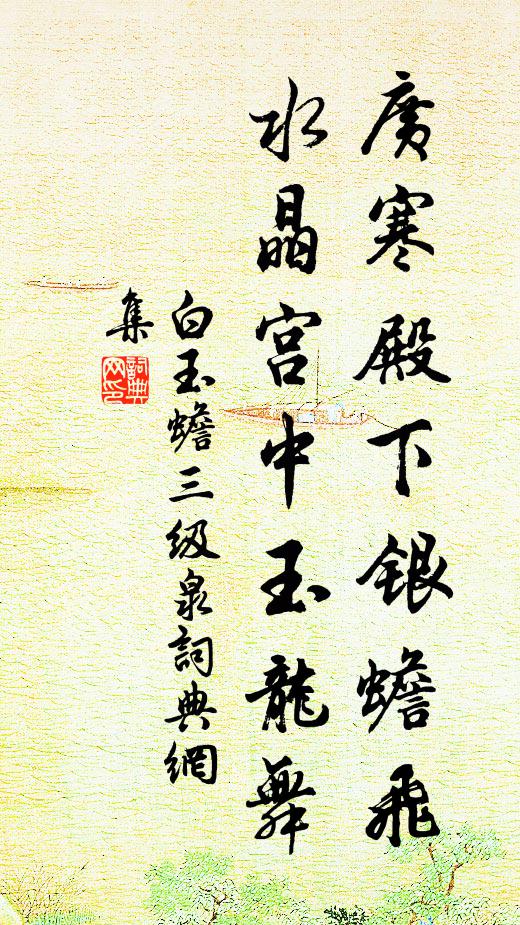 廣寒殿下銀蟾飛
水晶宮中玉龍舞
白玉蟾三级泉詞典網
集
詞典
网印